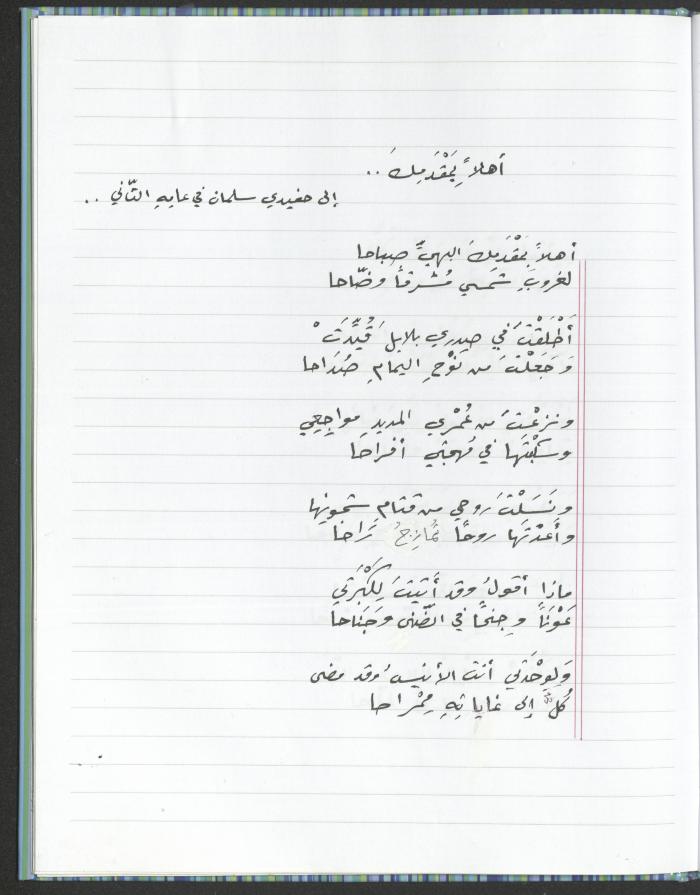 أهلاً بِمَقْدَمِكَ ..
إلى حفيدي سلمان في عامِهِ الثّاني ..
أهلاً بمَقْدَمِكَ البهيِّ صباحا
لغروبِ شمسي مُشرقاً وضّاحا
أَطْلَقْتَ في صدري بلابلَ قُيِّدَتْ
وَجَعَلْتَ من نَوْحِ اليمامِ صُدَاحا
ونزعْتَ من عُمْري المديدِ مواجِعي
وسكَبْتَها في مُهجتي أفراحا
ونَسَلْتَ روحي من قتامِ شجونِها
وأعَدْتَها روحًا تُمازِجُ رَاحا
ماذا أقولُ وقد أَتيتَ لِكَبْرَتي
عَوْنَاً وجنحًا في الضّنى وجَناحا
وَلِوِحْدَتي أنتَ الأنيسُ وقد مضى
كُلٌّ إلى غاياتِهِ مِمْراحا